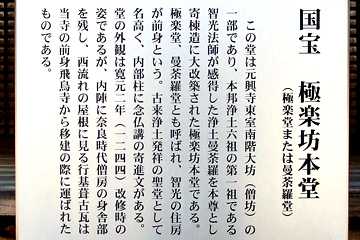 国宝 極楽坊本堂
（極楽堂または曼荼羅堂）
この堂は元興寺東室南階大坊（僧坊）の
一部であり、本邦浄土六祖の第一祖である
智光法師が感得した浄土曼荼羅を本尊とし
寄棟造に大改築された極楽坊本堂である。
極楽堂、曼荼羅堂とも呼ばれ、智光の住房
が前身という。古来浄土発祥の聖堂として
名高く、内部柱に念仏講の寄進文がある。
堂の外観は寛元二年（一二四四）改修時の
姿であるが、内陣に奈良時代僧房の身舎部
を残し、西流れの屋根に見る行基葺古瓦は
当寺の前身飛鳥寺から移建の際に運ばれた
ものである。